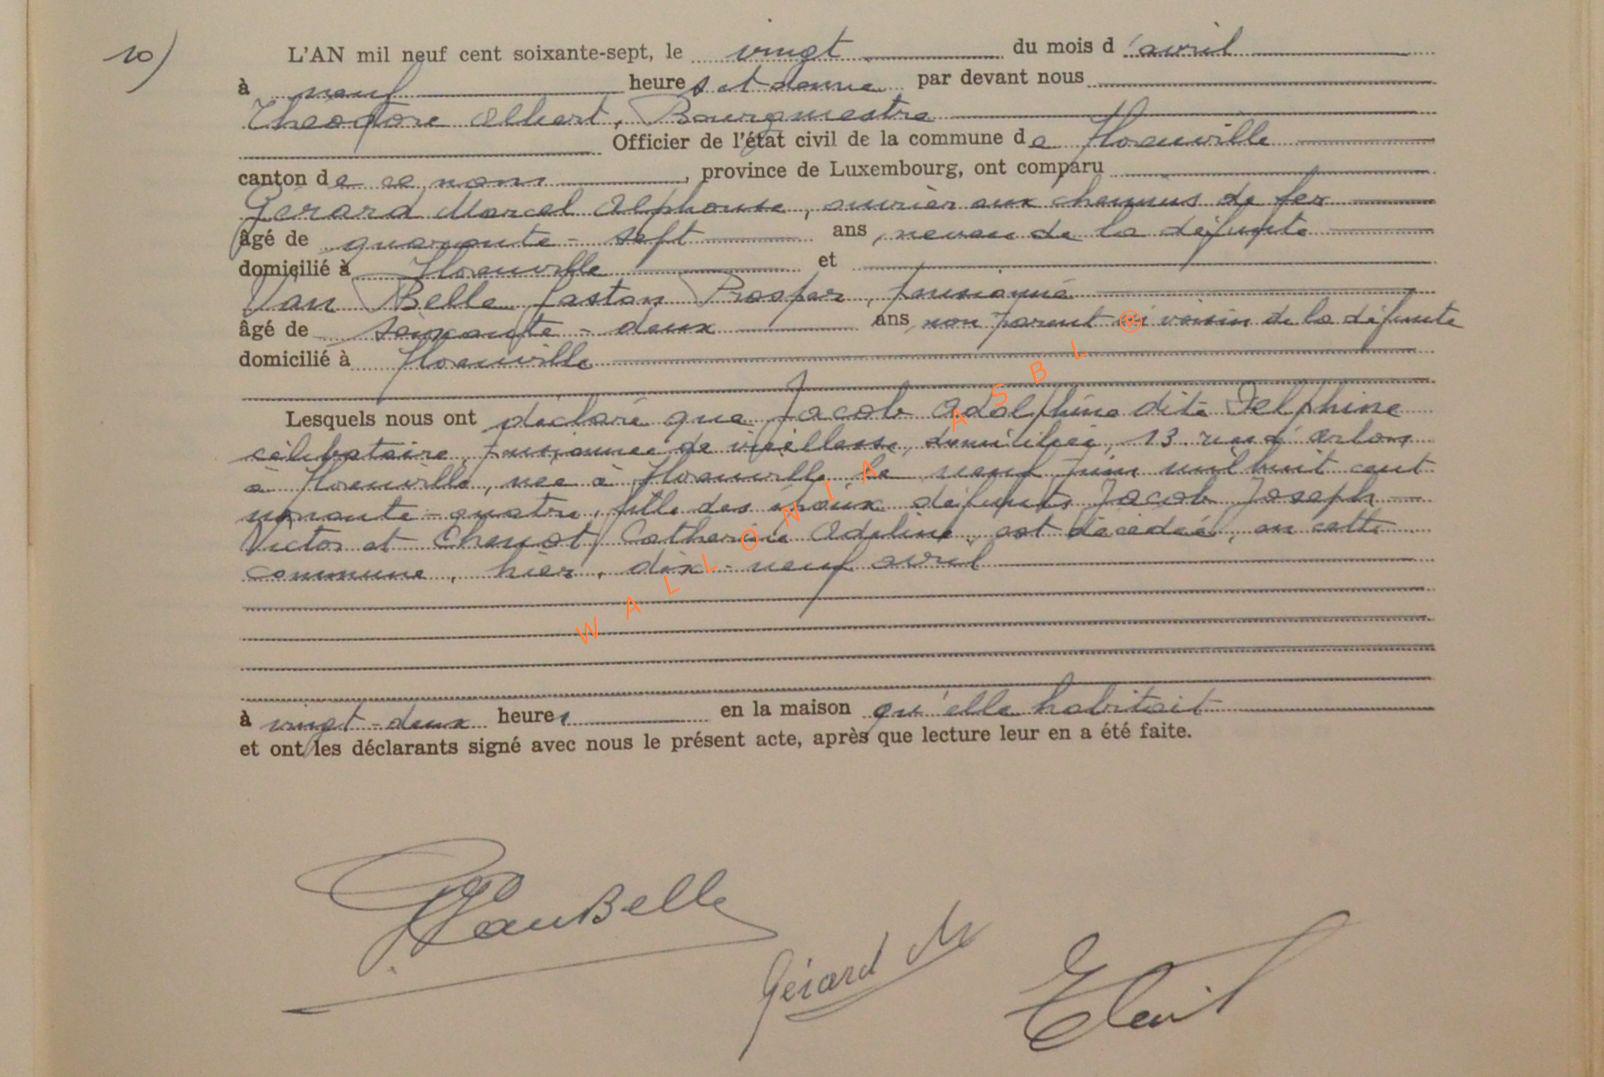 10)
L'AN mil neuf cent soixante-sept, le vingt du mois d'avril
à neuf heures et demie par devant nous
Théodore Albert, Bourgmestre
Officier de l'état civil de la commune de Florenville
canton de ce nom, province de Luxembourg, ont comparu
Gérard Marcel Alphonse, ouvrier aux chemins de fer
âgé de quarante-sept ans, neveu de la défunte
domicilié à Florenville et
Van Belle Gaston Prosper, pensionné
âgé de soixante-deux ans, non parent ni voisin de la défunte
domicilié à Florenville
Lesquels nous ont déclaré que Jacob Adolphine dite Delphine
célibataire, pensionnée de vieillesse, domiciliée, 13 rue d'Arlon
à Florenville, née à Florenville le neuf juin mil huit cent
nonante-quatre, fille des époux défunts Jacob Joseph
Victor et Chenot Catherine Adeline, est décédée, en cette
commune, hier, dix-neuf avril
à vingt-deux heures en la maison qu'elle habitait
et ont les déclarants signé avec nous le présent acte, après que lecture leur en a été faite.
VanBelle
Gérard M
WALLONIA ASBL ®